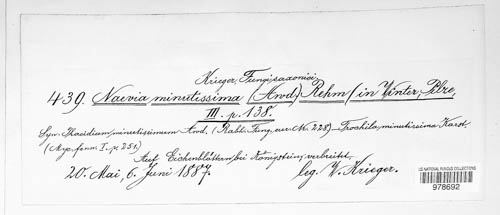 Krieger, Fungi saxonici,
439. Naevia minutissima (Awd.) Rehm (in Winter, Pilze,
III. p. 138.
Syn. Phacidium minutissimum Awd. (Rabh. Fung. eur. No. 228) – Trochila minutissima Karst.
(Myc. fenn I. p. 251)
Auf Eichenblättern bei Königstein, verbreitet.
20. Mai, 6. Juni 1887. leg. W. Krieger.
US NATIONAL FUNGUS COLLECTIONS
978692